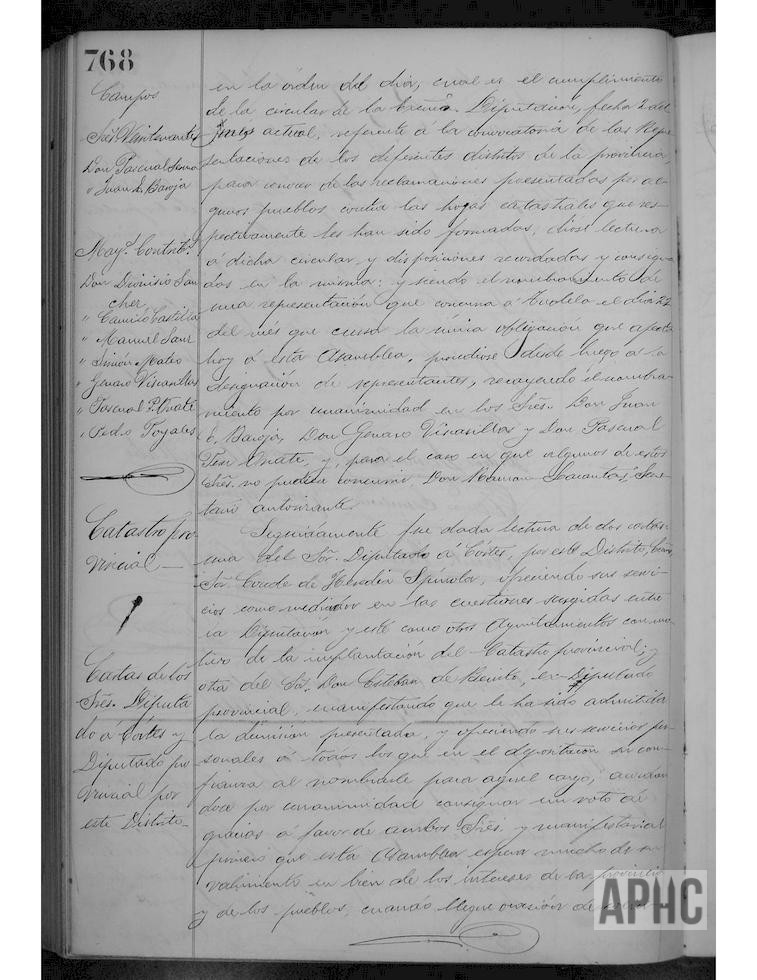 768
Campos
Sres. Veintenantes
Don Pascual Serra
" Juan L. Baroja
May.s Contrib.s
Don Dionisio San
chez
" Camilo Castilla
" Manuel Sanz
" Simón Mateo
" Genaro Vicasillas
" Pascual P. Oñate
" Pedro Poyales
Catastro pro
vincial
Cartas de los
Sres. Diputa
do á Córtes y
Diputado pro
vincial por
este Distrito
en la órden del dia, cual es el cumplimiento
de la circular de la Excma. Diputacion, fecha 2 del
Junio actual, referente á la convocatoria de las Repre
sentaciones de los diferentes distritos de la provincia
para conocer de las reclamaciones presentadas por al-
gunos pueblos contra las hojas catastrales que res-
pectivamente les han sido formadas, dióse lectura
á dicha circular y disposiciones recordadas y consigna
das en la misma: y siendo el nombramiento de
una representación que concurra á Tudela el dia 22
del mes que cursa la única obligación que afecta
hoy á esta Asamblea, procedióse desde luego á la
designación de representantes, recayendo el nombra-
miento por unanimidad en los Sres. Don Juan
L. Baroja, Don Genaro Vicasillas y Don Pascual
Perez Oñate, y, para el caso en que algunos de estos
Sres. no pudiera concurrir, Don Ramon Lacantas, Secre
tario autorizante.
Seguidamente fue dada lectura de dos cartas:
una del Sor. Diputado á Córtes, por este Distrito, Excmo
Sor. Conde de Heredia Spínola, ofreciendo sus servi-
cios como mediador en las cuestiones surgidas entre
la Diputación y este como otros Ayuntamientos con mo
tivo de la implantación del Catastro provincial; y
otra del Sor. Don Esteban de Benito, ex-Diputado
provincial, manifestando que le ha sido admitida
la dimisión presentada, y ofreciendo sus servicios per
sonales á todos los que en él depositaron su con-
fianza al nombrarle para aquel cargo, acordan
dose por unanimidad consignar un voto de
gracias á favor de ambos Sres. y manifestar al
primero que esta Asamblea espera mucho de su
valimiento en bien de los intereses de la provincia
y de los pueblos, cuando llegue ocasión de
APHC